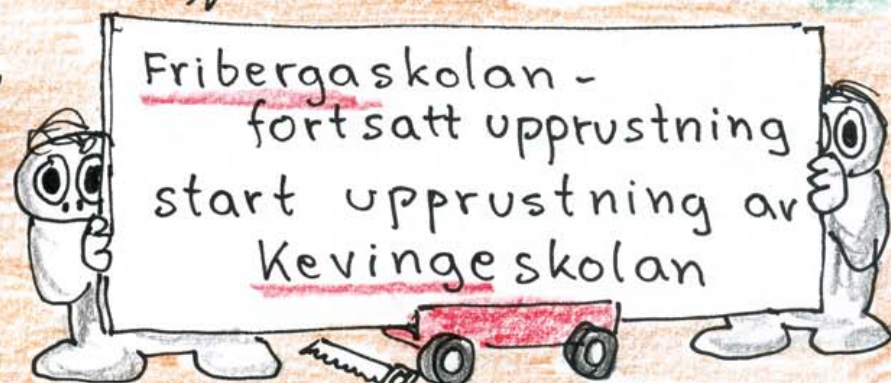 Fribergaskolan -
fortsatt upprustning
start upprustning av
Kevingeskolan